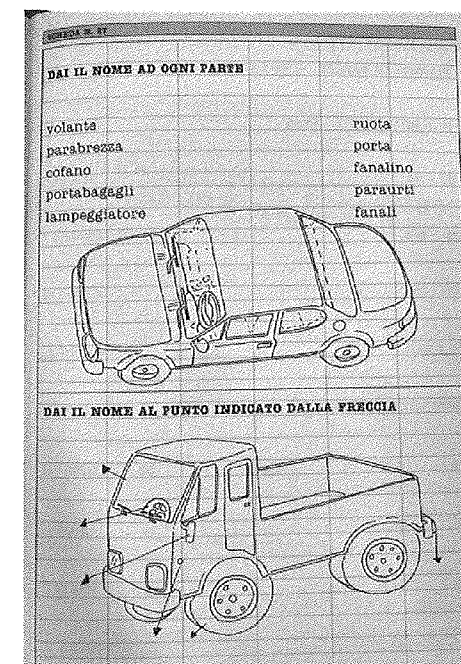 SCHEDA N. 27
DAI IL NOME AD OGNI PARTE
volante
parabrezza
cofano
portabagagli
lampeggiatore
ruota
porta
fanalino
paraurti
fanali
DAI IL NOME AL PUNTO INDICATO DALLA FRECCIA